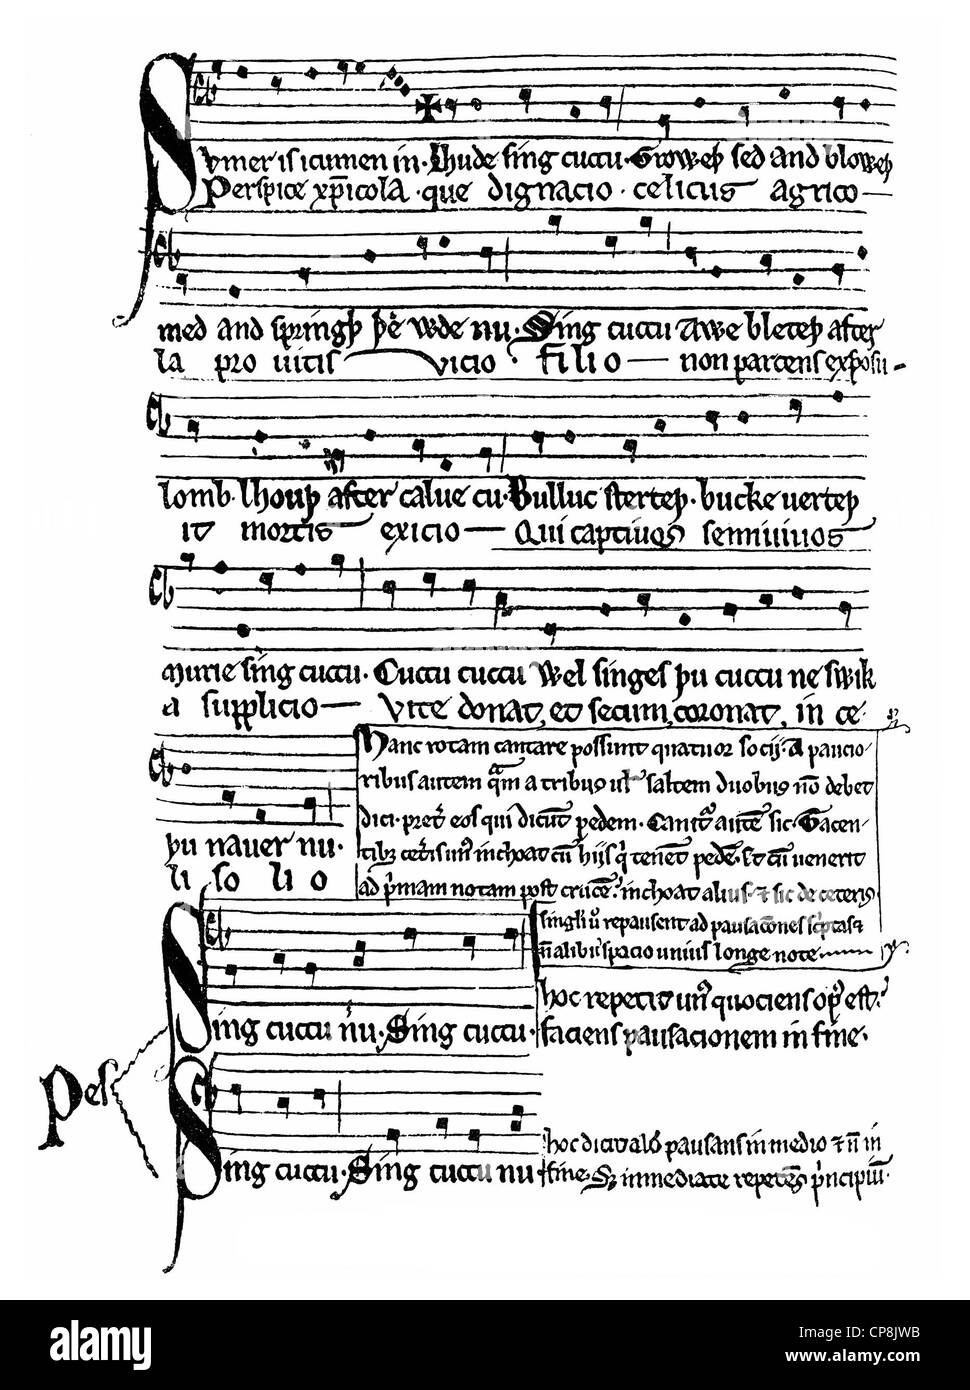 Svmer is icumen in· Lhude sing cuccu· Groweþ sed and bloweþ
Perspice xp̄icola· que dignacio· celicus agrico
med and springþ þe wde nu· Sing cuccu Awe bleteþ after
la pro uitis vicio· filio non parcens exposu-
lomb· lhouþ after calue cu· Bulluc sterteþ· bucke uerteþ
it mortis exicio Qui captiuos semiuiuos
Murie sing cuccu· Cuccu cuccu Wel singes þu cuccu ne swik
a supplicio Vite donat, et secum coronat, in ce-
þu nauer nu·
li solio
Hanc rotam cantare possunt quatuor socij· A paucio-
ribus autem q̄m a tribus uł saltem duobus nō debet
dici· pret̄ eos qui dicūt pedem· Canit᷑ autē sic· Tacen-
tib; cet̄is un᷒ inchoat cū hijs q̄ tenēt pedē· Et cū uenerit
ad p̄mam notam post crucē· inchoat alius· ⁊ sic de ceteris·
singli u̅ repausent ad pausacōnes sc̄ptas ⁊
n̄ alibi spacio unius longe note
Pes
Sing cuccu nu· Sing cuccu·
hoc repetit un᷒ quociens op᷒ est·
faciens pausacionem in fine·
Sing cuccu· Sing cuccu nu
hoc dicit ali᷒ pausans in medio ⁊ n̄ in
fine· S; immediate repetēs p̄ncipiū·
alamy
alamy
Image ID: CP8JWB
www.alamy.com